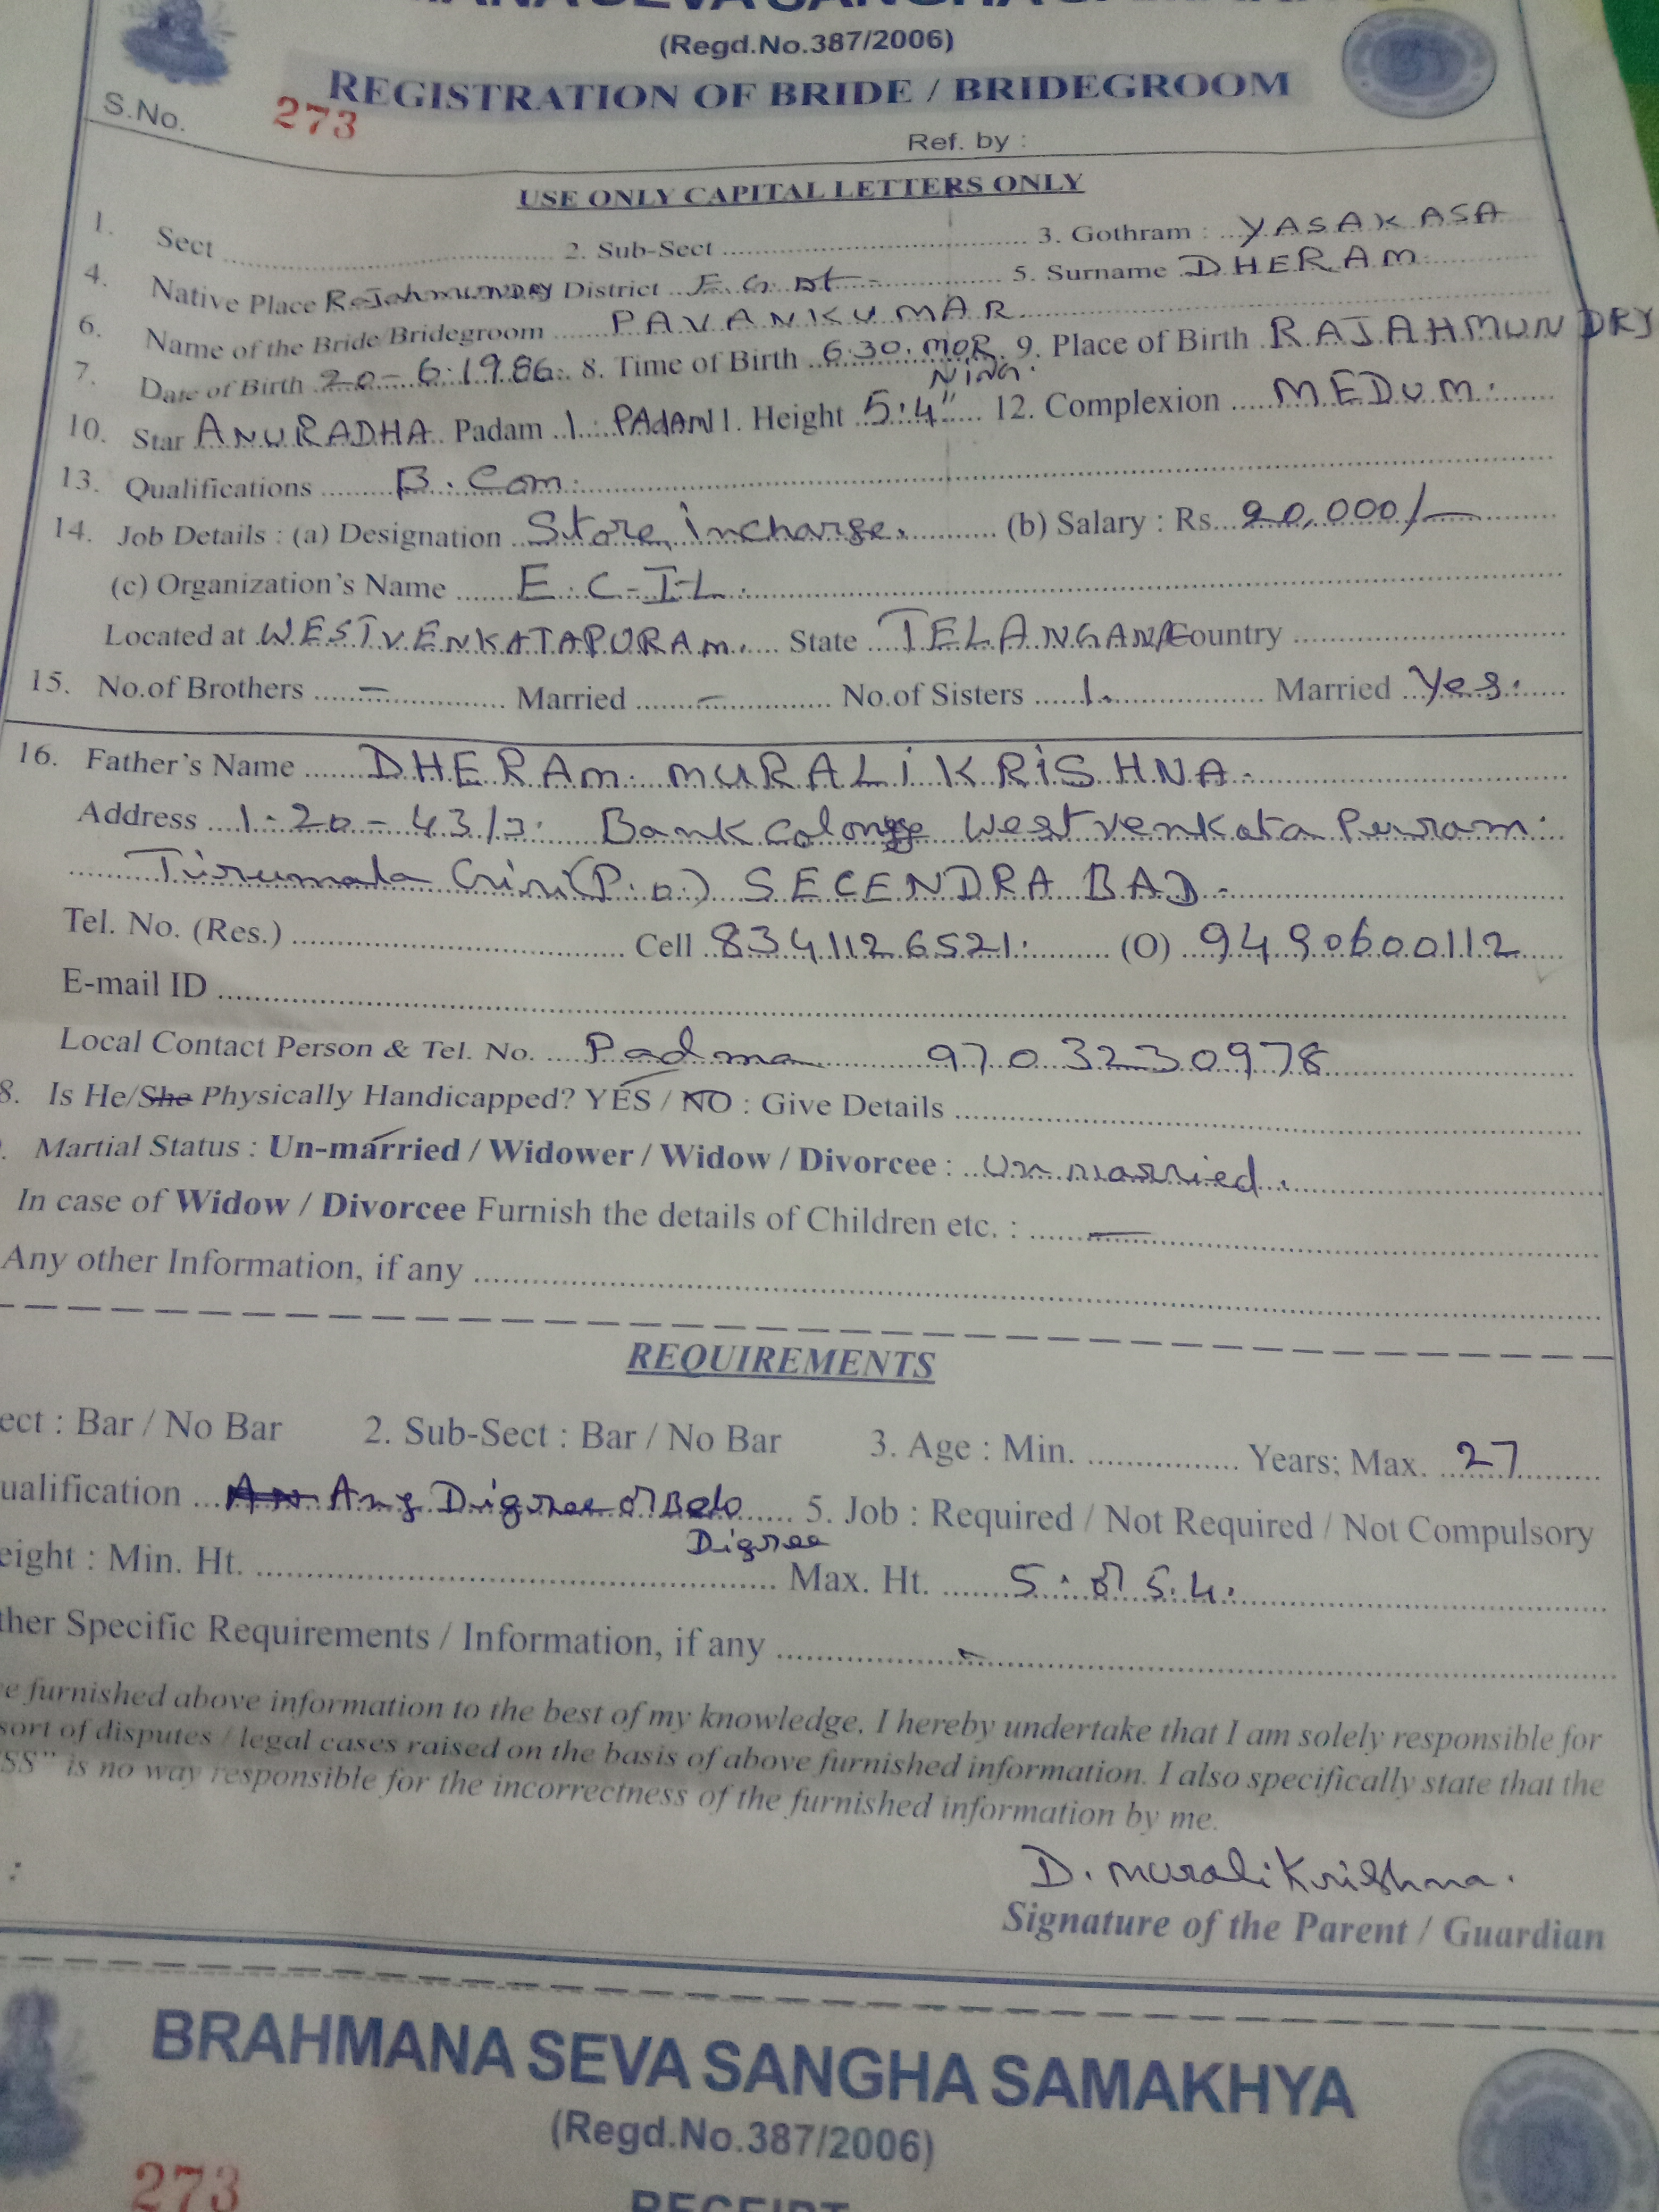 (Regd.No.387/2006)
REGISTRATION OF BRIDE / BRIDEGROOM
S.No. 273
Ref. by :
USE ONLY CAPITAL LETTERS ONLY
1. Sect 2. Sub-Sect 3. Gothram : YASAKASA
4. Native Place RaJahmUNDRY District E.G. Dt 5. Surname DHERAM
6. Name of the Bride/Bridegroom PAVANKUMAR
7. Date of Birth 20-6.1986. 8. Time of Birth 6.30. MOR NING. 9. Place of Birth RAJAHMUNDRY
10. Star ANURADHA Padam 1. PADAM 11. Height 5.4" 12. Complexion MEDUM.
13. Qualifications B.Com.
14. Job Details : (a) Designation Store, incharge. (b) Salary : Rs. 20,000/-
(c) Organization's Name E.C-I-L.
Located at WESTVENKATAPURAM. State TELANGANA Country
15. No.of Brothers - Married - No.of Sisters 1. Married Yes.
16. Father's Name DHERAM. MURALIKRISHNA.
Address 1-20-43/ Bank Colony West venkata Puram.
Tirumala Giri (P.O.) SECENDRA BAD.
Tel. No. (Res.) Cell 8341126521. (O) 9490600112
E-mail ID
Local Contact Person & Tel. No. Padma 9703230978
8. Is He/She Physically Handicapped? YES / NO : Give Details
. Martial Status : Un-married / Widower / Widow / Divorcee : Un married.
In case of Widow / Divorcee Furnish the details of Children etc. : -
Any other Information, if any
REQUIREMENTS
ect : Bar / No Bar 2. Sub-Sect : Bar / No Bar 3. Age : Min. Years; Max. 27
ualification Any Digree or Belo 5. Job : Required / Not Required / Not Compulsory
Digree
eight : Min. Ht. Max. Ht. 5. or 5.4.
ther Specific Requirements / Information, if any -
e furnished above information to the best of my knowledge. I hereby undertake that I am solely responsible for
sort of disputes / legal cases raised on the basis of above furnished information. I also specifically state that the
SS" is no way responsible for the incorrectness of the furnished information by me.
D. MuraliKrishna.
Signature of the Parent / Guardian
BRAHMANA SEVA SANGHA SAMAKHYA
(Regd.No.387/2006)
273
RECEIPT